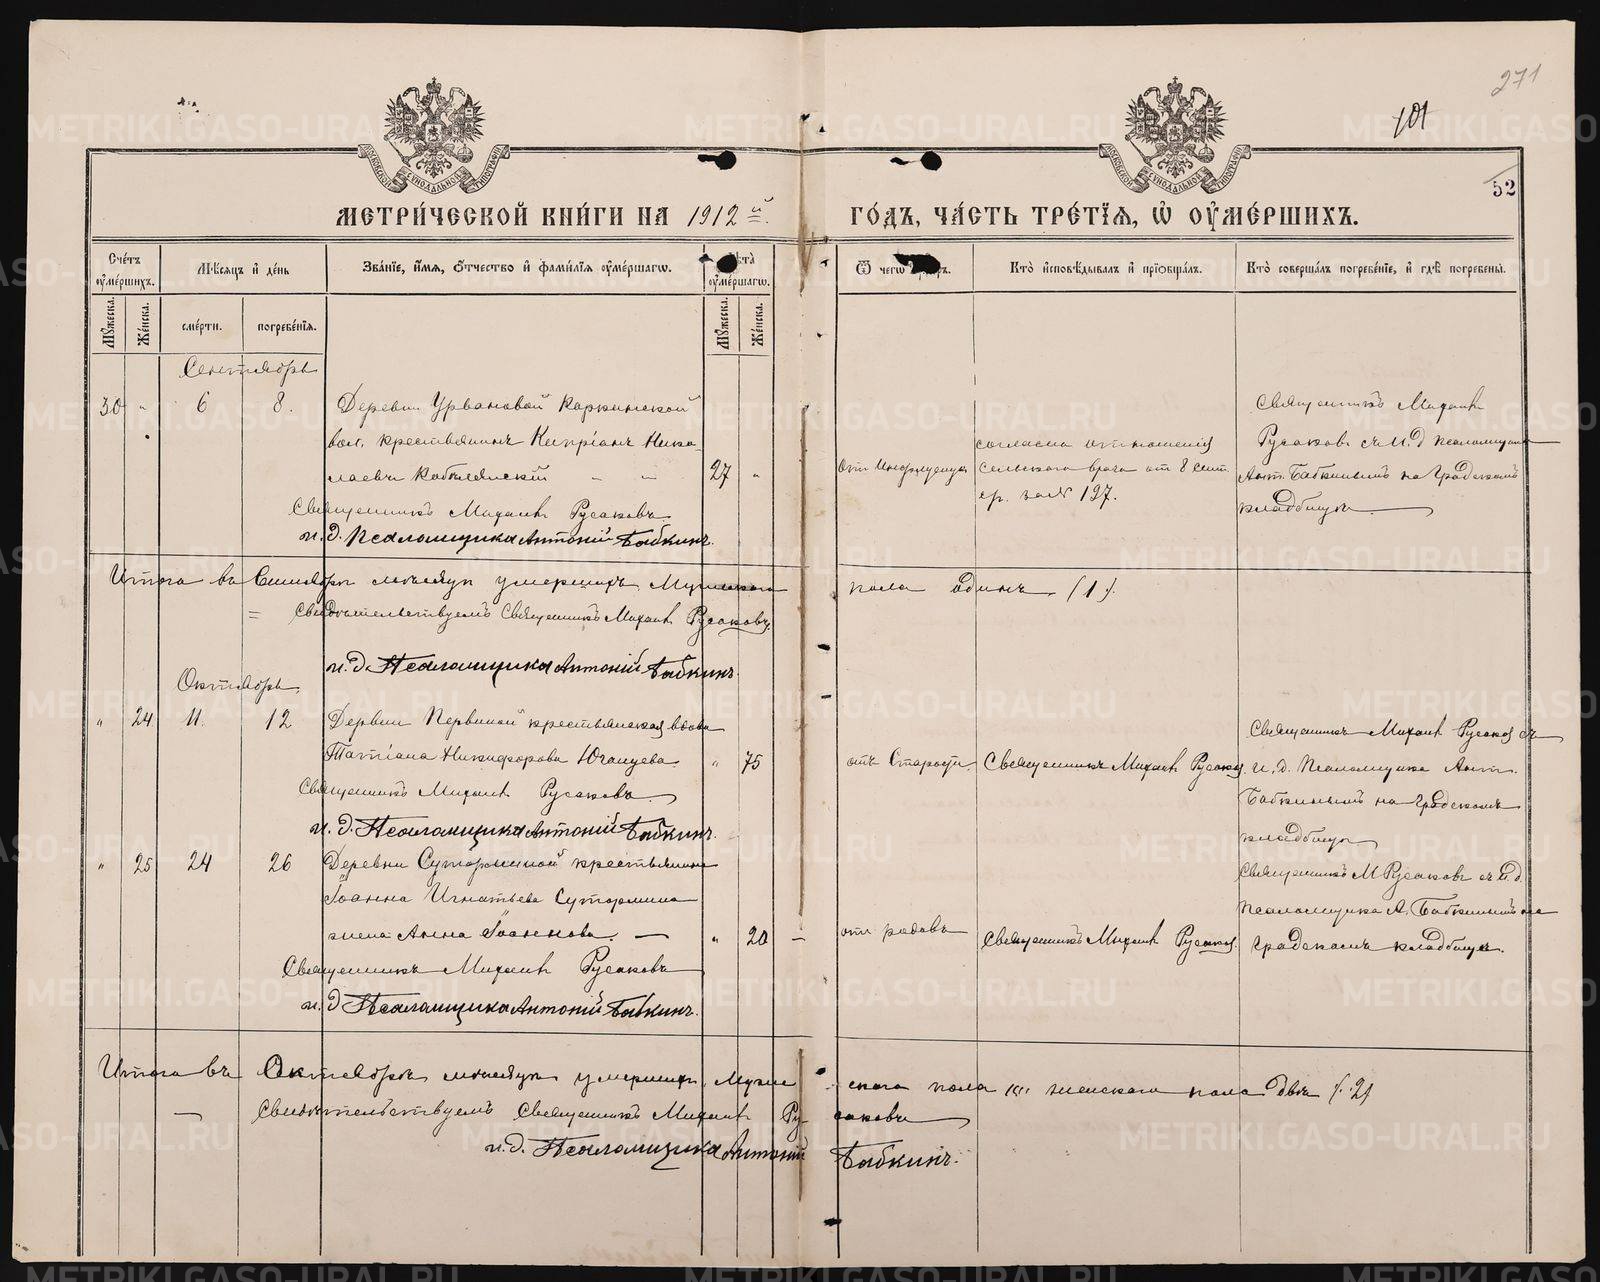 271
101
52
МЕТРИ́ЧЕСКОЙ КНИ́ГИ НА 1912 й. ГО́ДЪ, ЧА́СТЬ ТРЕ́ТЇѦ, Ѿ ОУМЕ́РШИХЪ.
Сче́тъ оуме́ршихъ.
Мѣ́сяцъ и де́нь
Зва́нїе, и́мя, о́тчество и фами́лїя оуме́ршагѡ.
Лѣта̀ оуме́ршагѡ.
Ѿ чегѡ̀
Кто̀ исповѣ́дывалъ и прїобща́лъ.
Кто̀ соверша́лъ погребе́нїе, и гдѣ̀ погребены̀.
Мꙋ́жеска.
Же́нска.
сме́рти.
погребе́нїя.
Мꙋ́жеска.
Же́нска.
Сентябрь
30 " 6 8.
Деревни Урвановой Каркинской
вол. крестьянинъ Кипріанъ Нико-
лаевъ 27 "
Священникъ Михаилъ Русаковъ
и. д. Псаломщика Антоній Бабкинъ.
отъ
согласно отношенія
сельскаго врача от 8 сент.
с/г. за № 197.
Священникъ Михаилъ
Русаковъ съ и. д псаломщика
Ант. Бабкинымъ на Градскомъ
кладбищѣ
Итого въ Сентябрѣ мѣсяцѣ умершихъ Мужескаго пола одинъ (1).
Свидѣтельствуемъ Священникъ Михаилъ Русаковъ.
и. д. Псаломщика Антоній Бабкинъ.
Октябрь.
" 24 11. 12
Деревни Первиной крестьянская вдова
Татіана Никифорова Юганцева. " 75
Священникъ Михаилъ Русаковъ
и. д. Псаломщика Антоній Бабкинъ.
отъ Старости.
Священникъ Михаилъ Русаковъ.
Священникъ Михаилъ Русаковъ съ
и. д. Псаломщика Ант.
Бабкинымъ на Градскомъ
кладбищѣ
" 25 24 26
Деревни Суторминой крестьянина
Іоанна Игнатьева Сутормина
жена Анна Іоаннова. " 20
Священникъ Михаилъ Русаковъ
и. д Псаломщика Антоній Бабкинъ.
отъ родовъ
Священникъ Михаилъ Русаковъ.
Священникъ М Русаковъ съ и. д.
Псаломщика А. Бабкинымъ на
Градскомъ кладбищѣ.
Итого въ Октябрѣ мѣсяцѣ умершихъ Мужескаго пола женскаго пола двѣ (2)
Свидѣтельствуемъ Священникъ Михаилъ Русаковъ
и. д. Псаломщика Антоній Бабкинъ.
METRIKI.GASO-URAL.RU